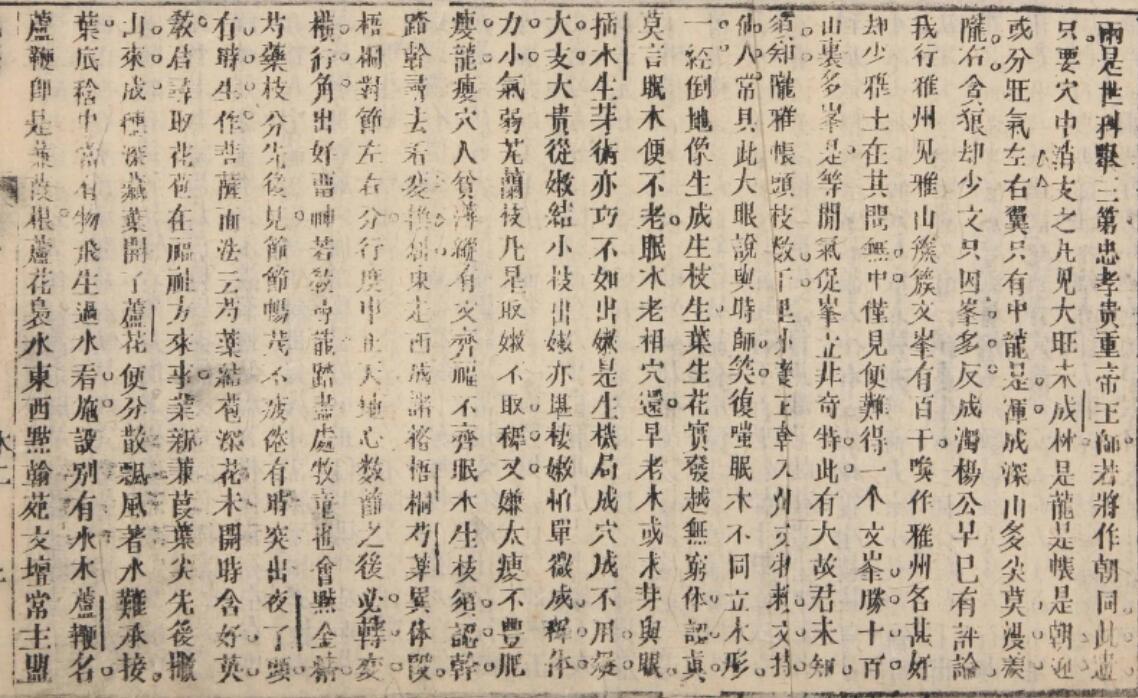 兩是世科舉三第忠孝貴重帝王師若將作朝同此
只要穴中消支之凡見大旺未成林是龍是帳是朝迎
或分旺氣左右翼只有中龍是渾成深山多尖莫漫羨
隴右貪狼却少文只因峯多反成濁楊公早已有評論
我行雅州見雅山簇簇文峯有百千喚作雅州名甚好
却少雅士在其間無中僅見便難得一个文峯勝十百
山裏多峯是等閒氣促峯立非奇特此有大故君未知
須知隴雅帳頭枝數千里外
仙人常具此大眼說與時師笑復嗤眠木不同立木形
一經倒地像生成生枝生葉生花實發越無窮体認真
莫言眠木便不老眠木老相穴還早老木或未芽與眠
插木生芽術亦巧不如出嫩是生機局成穴成不用疑
大支大貴從嫩結小枝出嫩亦堪棲嫩怕單微成穉体
力小氣弱芄蘭枝凡是取嫩不取穉又嫌太瘦不豐肥
瘦龍瘦穴人貧薄縱有文齊福不齊眠木生枝須認幹
踏幹尋去看變換斜東走西成諸格梧桐芍藥異体段
梧桐對節左右分行度中正天地心數節之後必轉變
橫行角出好曹神若教尋龍踏盡處牧童也會點金
芍藥枝分先後見節節暢茂不疲倦有時突出夜了頭
有時生作菩薩面法云芍葉結苞深花未開時含好英
教君尋取花苞在福祉方來事業新蒹葭葉尖先後臘
山來成種深藏葉開了蘆花便分散飄風著水難承接
葉底稔中當有物飛生過水看施設別有水木蘆鞭名
蘆鞭即是蒹葭根蘆花裊水東西點翰苑文壇常主盟